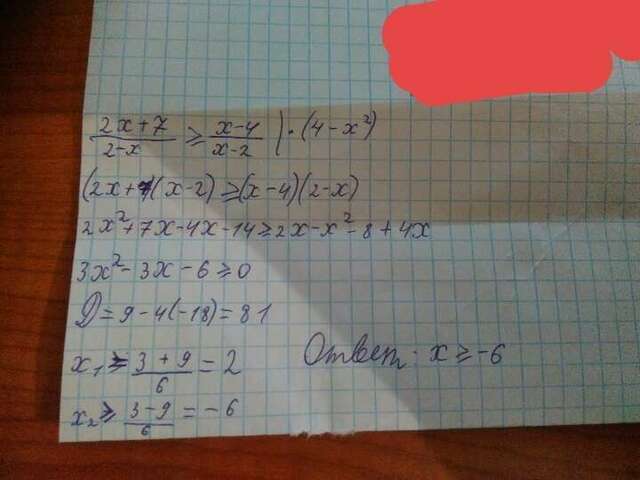 (2x+7)/(2-x) ≥ (x-4)/(x-2) | · (4-x²)
(2x+7)(x-2) ≥ (x-4)(2-x)
2x²+7x-4x-14 ≥ 2x-x²-8+4x
3x²-3x-6 ≥ 0
D = 9-4(-18) = 81
x₁ ≥ (3+9)/6 = 2
Ответ: x ≥ -6
x₂ ≥ (3-9)/6 = -6